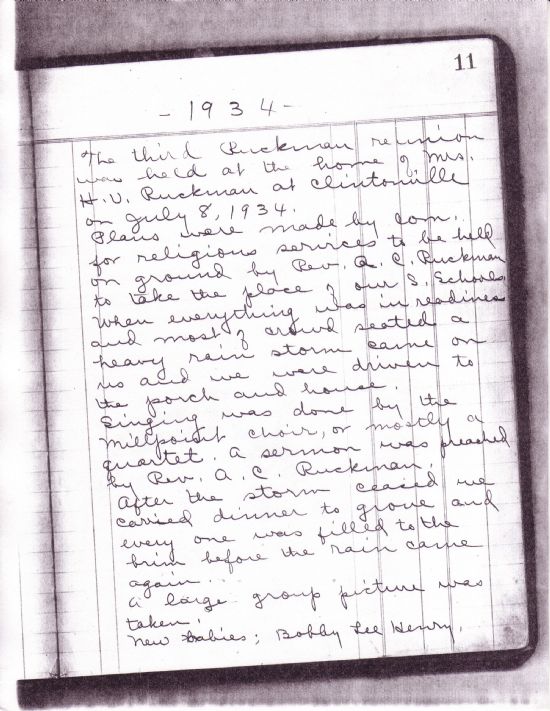 11
- 1934 -
The third Ruckman reunion
was held at the home of Mrs.
H. V. Ruckman at Clintonville
on July 8, 1934.
Plans were made by com.
for religious services to be held
on ground by Rev. A. C. Ruckman
to take the place of our S. Schools.
When everything was in readiness
and most of crowd seated a
heavy rain storm came on
us and we were driven to
the porch and house.
Singing was done by the
Millpoint choir, or mostly a
quartet. A sermon was preached
by Rev. A. C. Ruckman.
After the storm ceased we
carried dinner to grove and
every one was filled to the
brim before the rain came
again...
A large group picture was
taken.
New babies; Bobby Lee Henry.